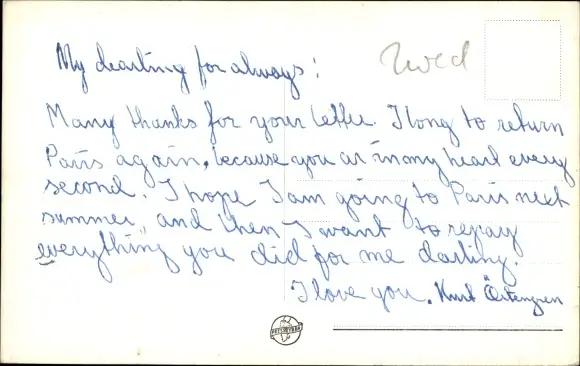 My dearling for always!
Many thanks for your letter. I long to return
Paris again, because you ar in my heart every
second. I hope I am going to Paris next
summer, and then I want to repay
everything you did for me darling.
I love you. Kurt Östengren